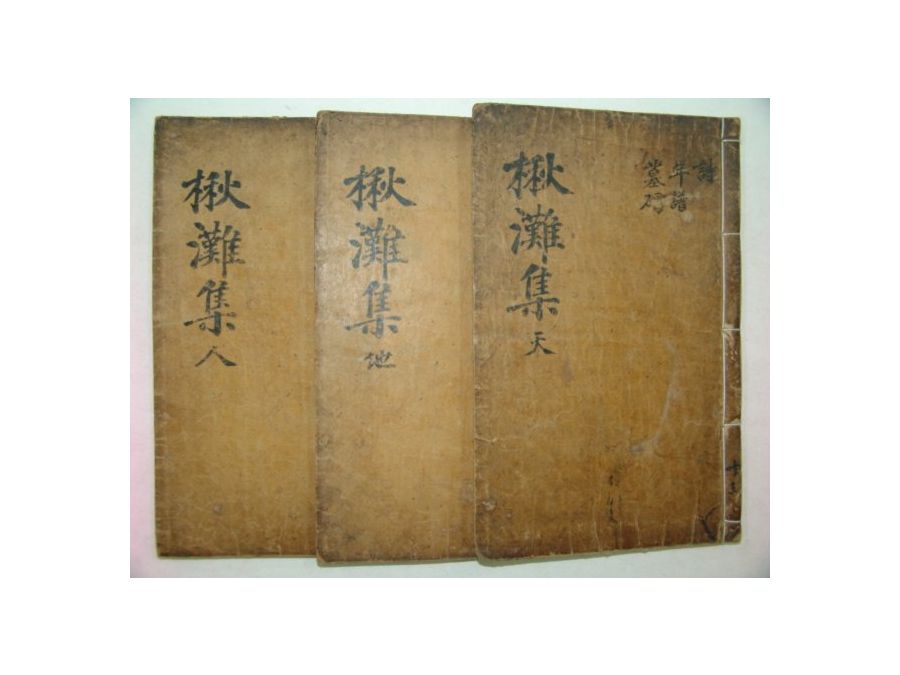 詩
年譜
墓碣
楸灘集 天
楸灘集 地
楸灘集 人